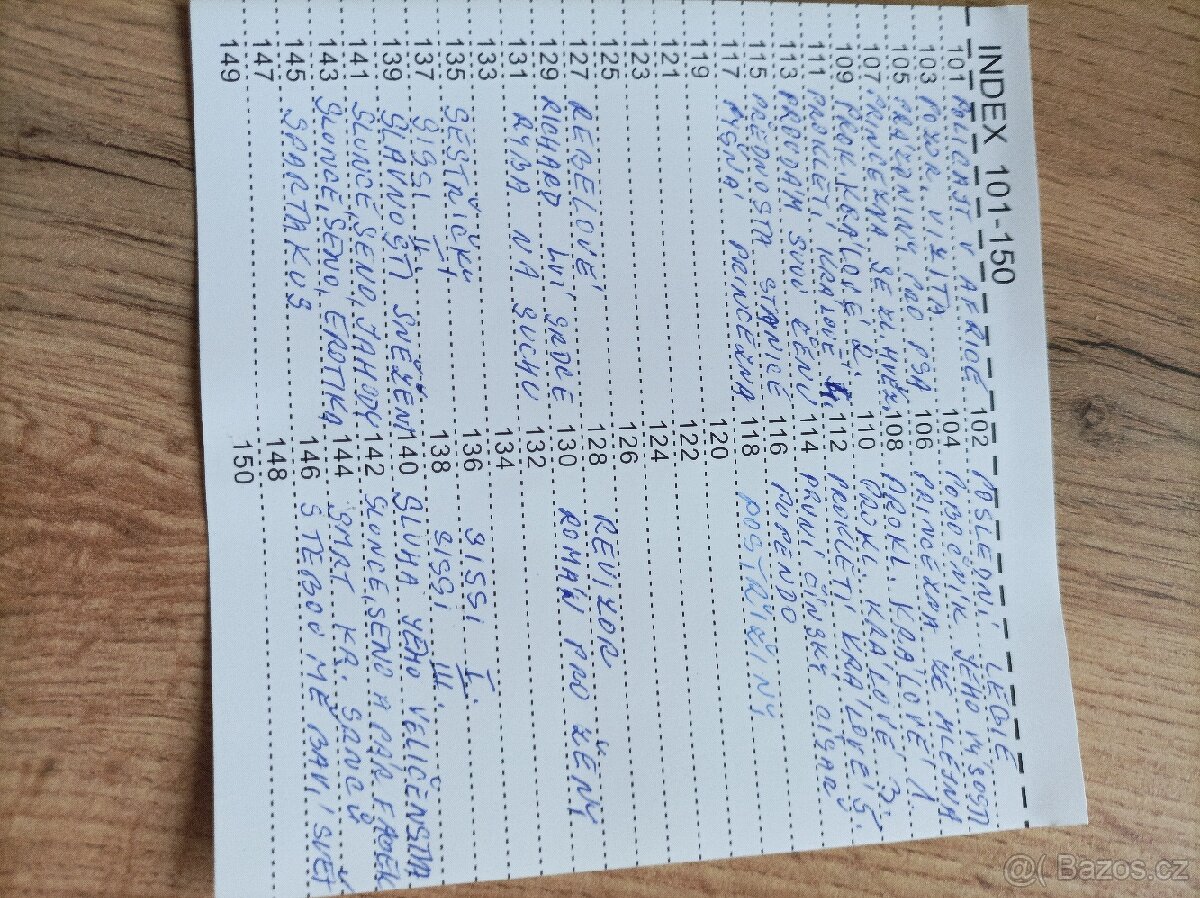 INDEX 101-150
101 POLICAJT V AFRICE 102 POSLEDNÍ LEGIE
103 POZOR, VIZITA 104 POBOČNÍK JEHO VÝSOSTI
105 PRÁZDNINY PRO PSA 106 PRINCEZNA ZE MLEJNA
107 PRINCEZNA SE ZL. HVĚZ. 108 PROKL. KRÁLOVÉ 1
109 PROK. KRÁLOVÉ 2. 110 PROKL. KRÁLOVÉ 3.
111 PROKLETÍ KRÁLOVÉ 4. 112 PROKLETÍ KRÁLOVÉ 5.
113 PRODÁM SVOU ŽENU 114 PRVNÍ ČÍNSKÝ CIGAR
115 PŘEDNOSTA STANICE 116 PUPENDO
117 PYŠNÁ PRINCEZNA 118 POSTŘIŽINY
119 120
121 122
123 124
125 126
127 REBELOVÉ 128 REVIZOR
129 RICHARD LVÍ SRDCE 130 ROMÁN PRO ŽENY
131 RYBA NA SUCHU 132
133 134
135 SESTŘIČKY 136 SISSI I.
137 SISSI II. 138 SISSI III.
139 SLAVNOSTI SNĚŽEN 140 SLUHA JEHO VELIČENSTVA
141 SLUNCE, SENO, JAHODY 142 SLUNCE, SENO A PÁR FACEK
143 SLUNCE, SENO, EROTIKA 144 SMRT KR. SRNCŮ
145 SPARTAKUS 146 S TEBOU MĚ BAVÍ SVĚT
147 148
149 150
@( Bazos.cz